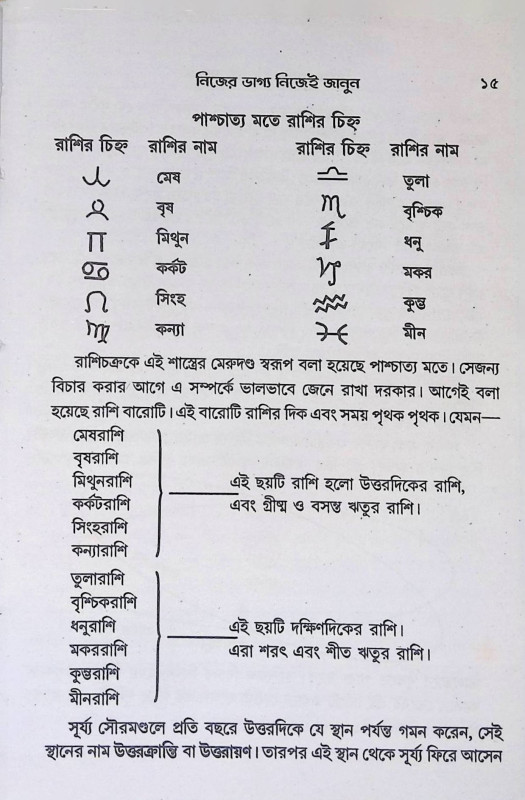 নিজের ভাগ্য নিজেই জানুন ১৫
পাশ্চাত্য মতে রাশির চিহ্ন
রাশির চিহ্ন রাশির নাম রাশির চিহ্ন রাশির নাম
মেষ তুলা
বৃষ বৃশ্চিক
মিথুন ধনু
কর্কট মকর
সিংহ কুম্ভ
কন্যা মীন
রাশিচক্রকে এই শাস্ত্রের মেরুদণ্ড স্বরূপ বলা হয়েছে পাশ্চাত্য মতে। সেজন্য
বিচার করার আগে এ সম্পর্কে ভালভাবে জেনে রাখা দরকার। আগেই বলা
হয়েছে রাশি বারোটি। এই বারোটি রাশির দিক এবং সময় পৃথক পৃথক। যেমন—
মেষরাশি
বৃষরাশি
মিথুনরাশি
কর্কটরাশি
সিংহরাশি
কন্যারাশি
এই ছয়টি রাশি হলো উত্তরদিকের রাশি,
এবং গ্রীষ্ম ও বসন্ত ঋতুর রাশি।
তুলারাশি
বৃশ্চিকরাশি
ধনুরাশি
মকররাশি
কুম্ভরাশি
মীনরাশি
এই ছয়টি দক্ষিণদিকের রাশি।
এরা শরৎ এবং শীত ঋতুর রাশি।
সূর্য্য সৌরমণ্ডলে প্রতি বছরে উত্তরদিকে যে স্থান পর্যন্ত গমন করেন, সেই
স্থানের নাম উত্তরক্রান্তি বা উত্তরায়ণ। তারপর এই স্থান থেকে সূর্য্য ফিরে আসেন